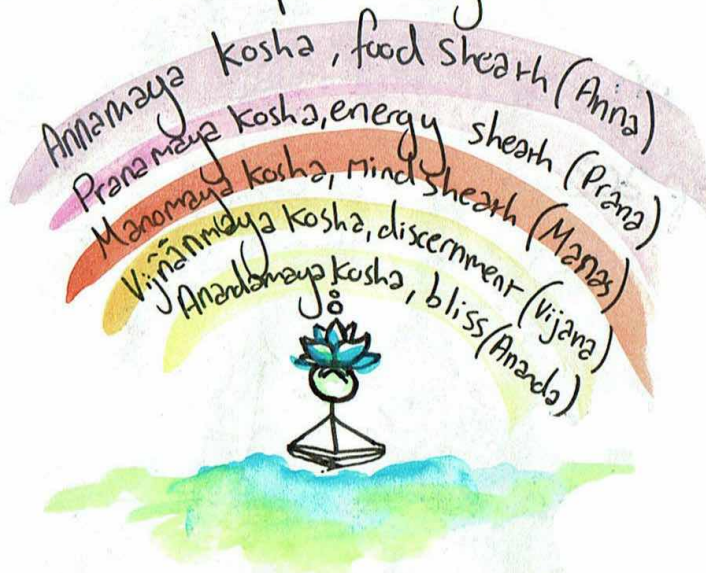 Annamaya kosha, food sheath (Anna)
Pranamaya kosha, energy sheath (Prana)
Manomaya kosha, mind sheath (Manas)
Vijñānmaya kosha, discernment (Vijana)
Anandamaya kosha, bliss (Ananda)